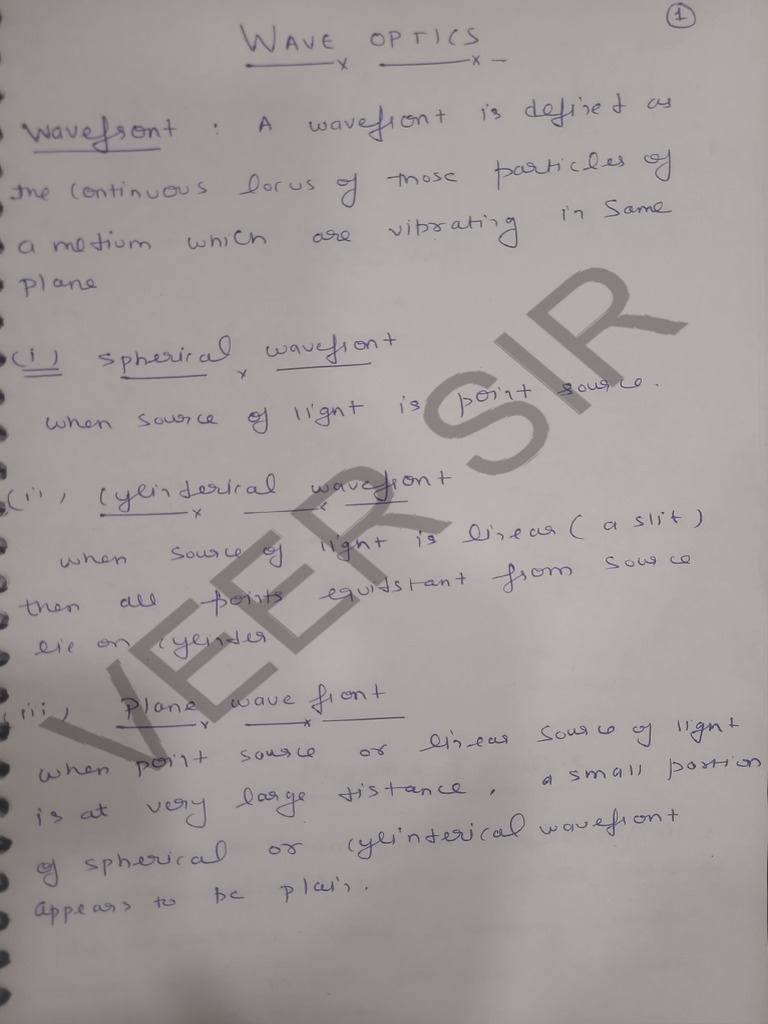 1
WAVE OPTICS
Wavefront : A wavefront is defined as
the continuous locus of those particles of
a medium which are vibrating in same
plane
(i) spherical wavefront
when source of light is point source.
(ii) cylinderical wavefront
when source of light is linear (a slit)
then all points equidstant from source
lie on cylinder
(iii) Plane wave front
when point source or linear source of light
is at very large distance, a small portion
of spherical or cylinderical wavefront
appears to be plain.
VEER SIR